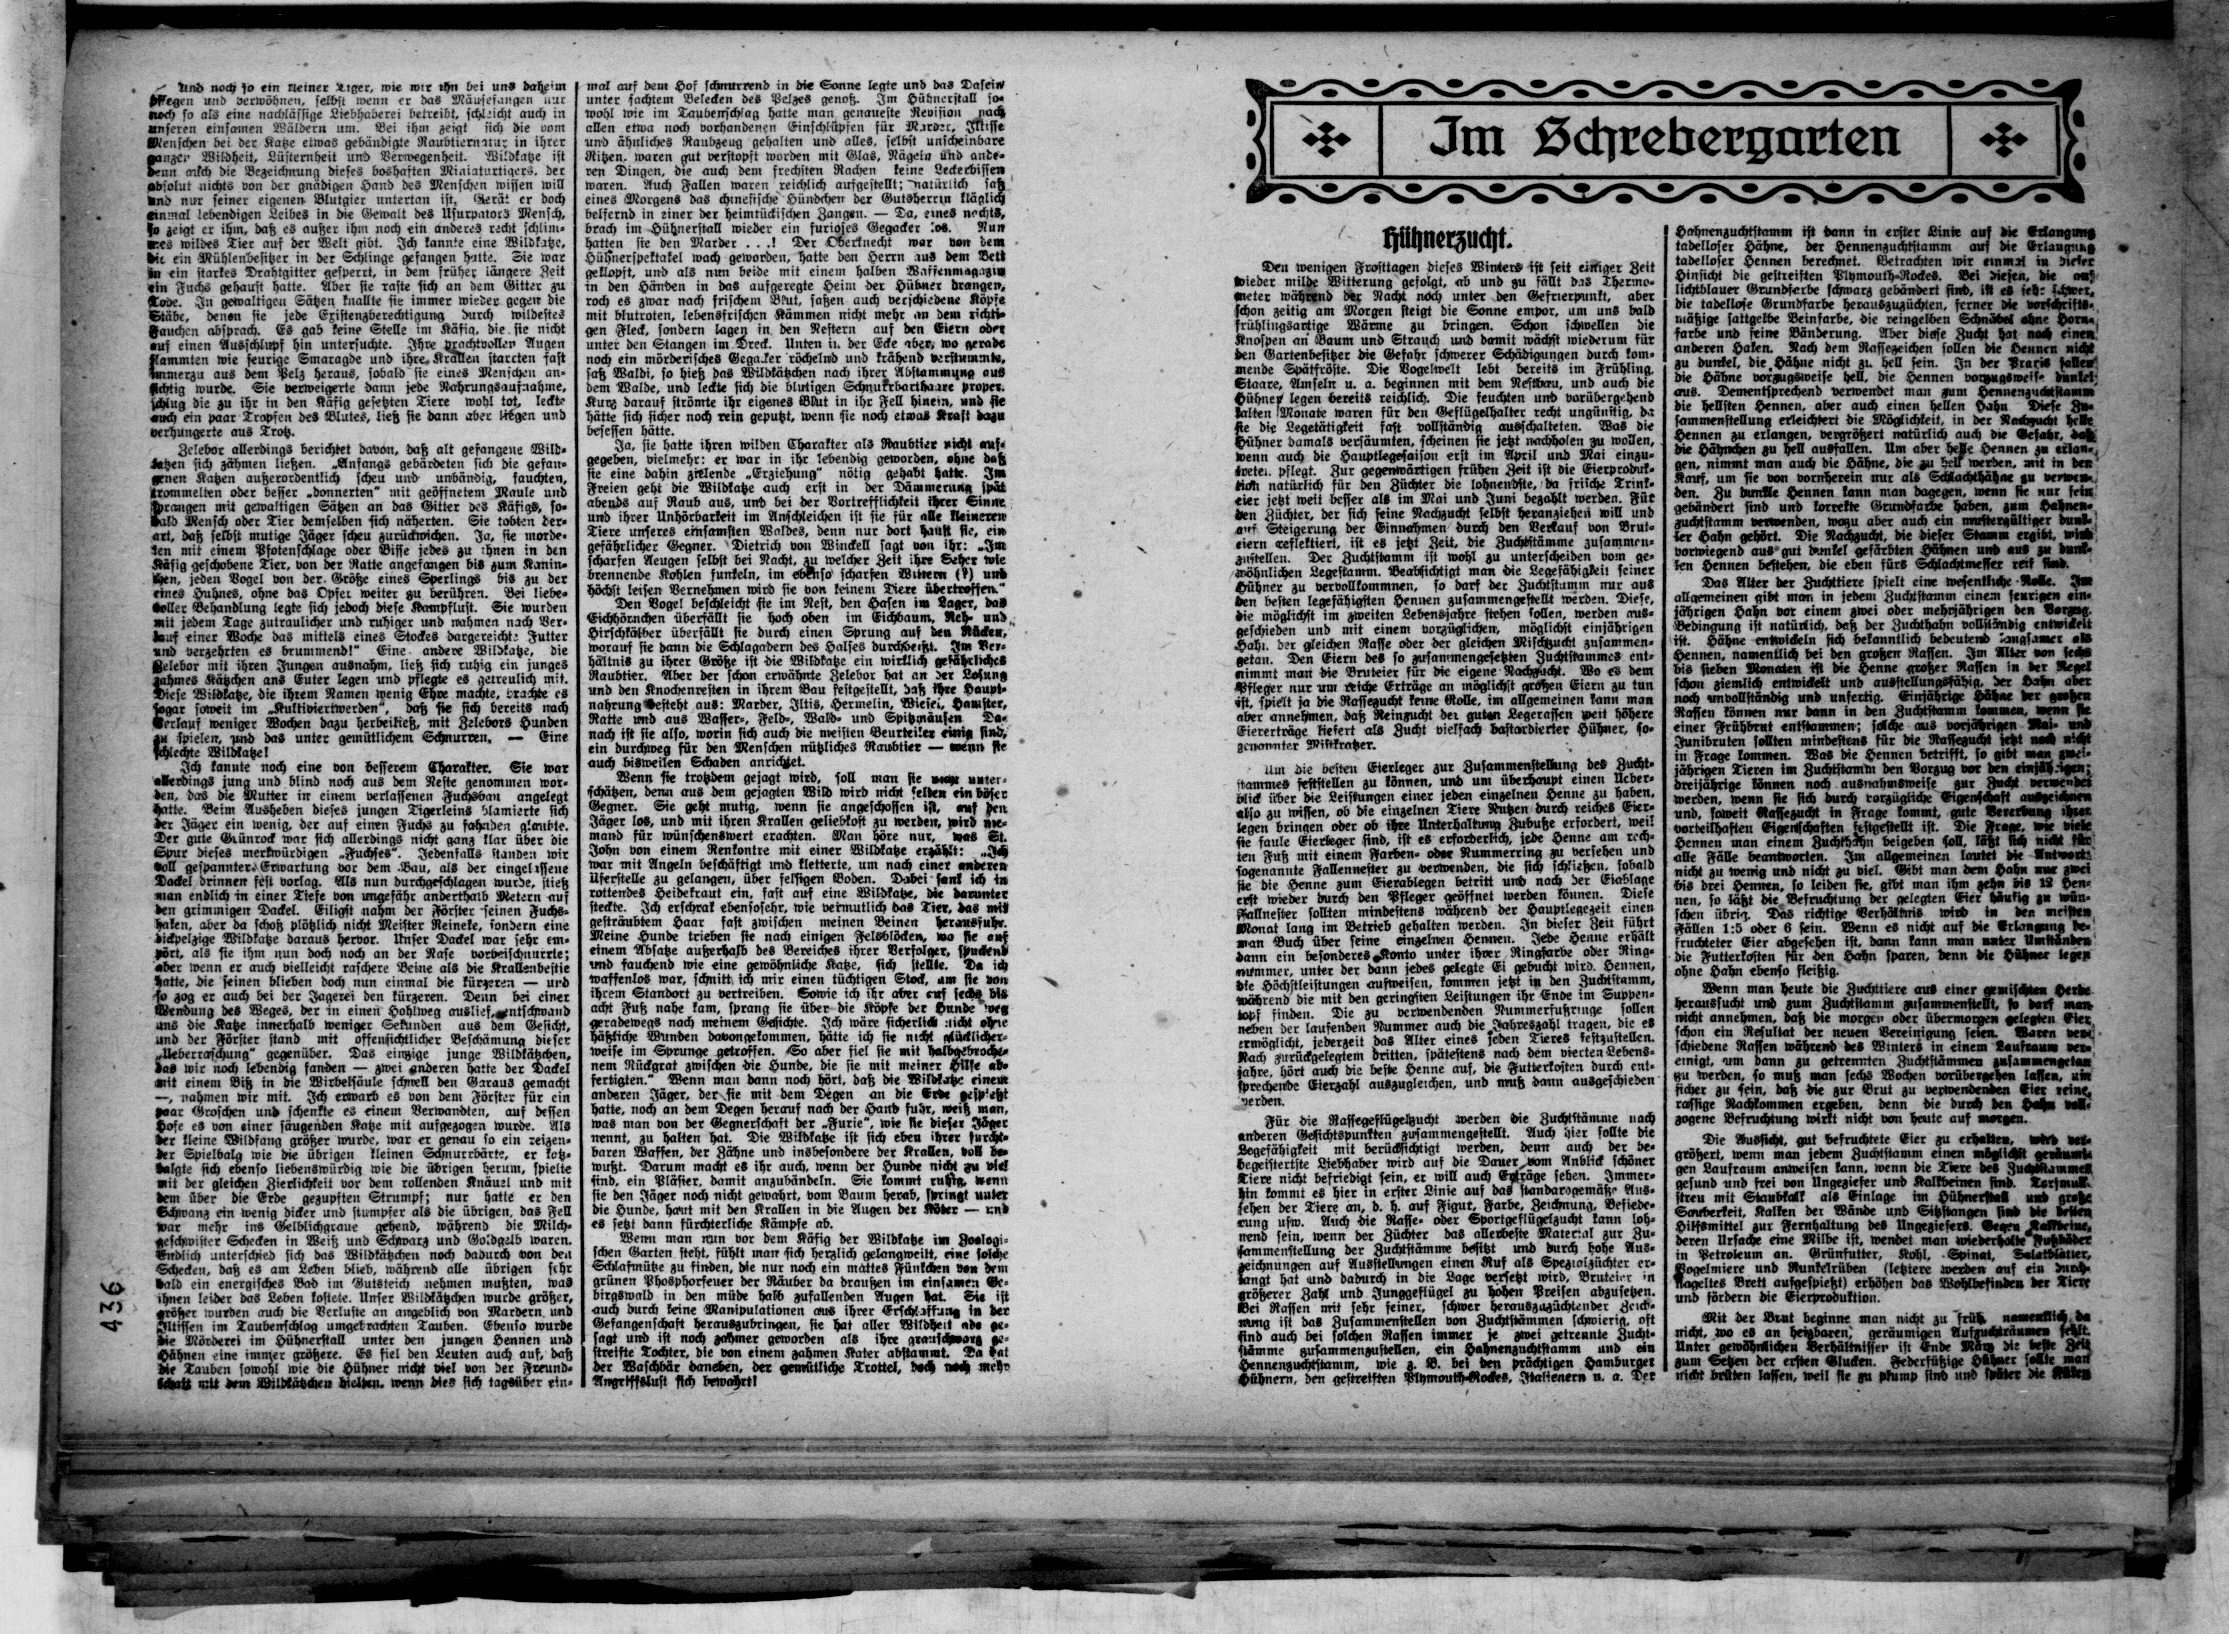 Und noch so ein kleiner Tiger, wie wir ihn bei uns daheim
pflegen und verwöhnen, selbst wenn er das Mäusefangen nur
noch so als eine nachlässige Liebhaberei betreibt, schleicht auch in
unseren einsamen Wäldern um. Bei ihm zeigt sich die vom
Menschen bei der Katze etwas gebändigte Raubtiernatur in ihrer
ganzen Wildheit, Lüsternheit und Verwegenheit. Wildkatze ist
denn auch die Bezeichnung dieses boshaften Miniaturtigers, der
absolut nichts von der gnädigen Hand des Menschen wissen will
und nur seiner eigenen Blutgier untertan ist. Gerät er doch
einmal lebendigen Leibes in die Gewalt des Usurpators Mensch,
so zeigt er ihm, daß es außer ihm noch ein anderes recht schlim-
mes wildes Tier auf der Welt gibt. Ich kannte eine Wildkatze,
die ein Mühlenbesitzer in der Schlinge gefangen hatte. Sie war
in ein starkes Drahtgitter gesperrt, in dem früher längere Zeit
ein Fuchs gehaust hatte. Aber sie raste sich an dem Gitter zu
Tode. In gewaltigen Sätzen knallte sie immer wieder gegen die
Stäbe, denen sie jede Existenzberechtigung durch wildestes
Fauchen absprach. Es gab keine Stelle im Käfig, die sie nicht
auf einen Ausschlupf hin untersuchte. Ihre prachtvollen Augen
flammten wie feurige Smaragde und ihre Krallen starrten fast
immerzu aus dem Pelz heraus, sobald sie eines Menschen an-
sichtig wurde. Sie verweigerte dann jede Nahrungsaufnahme,
schlug die zu ihr in den Käfig gesetzten Tiere wohl tot, leckte
auch ein paar Tropfen des Blutes, ließ sie dann aber liegen und
verhungerte aus Trotz.
Zelebor allerdings berichtet davon, daß alt gefangene Wild-
katzen sich zähmen ließen. „Anfangs gebärdeten sich die gefan-
genen Katzen außerordentlich scheu und unbändig, fauchten,
trommelten oder besser „donnerten“ mit geöffnetem Maule und
sprangen mit gewaltigen Sätzen an das Gitter des Käfigs, so-
bald Mensch oder Tier demselben sich näherten. Sie tobten der-
art, daß selbst mutige Jäger scheu zurückwichen. Ja, sie morde-
ten mit einem Pfotenschlage oder Bisse jedes zu ihnen in den
Käfig geschobene Tier, von der Ratte angefangen bis zum Kanin-
chen, jeden Vogel von der Größe eines Sperlings bis zu der
eines Huhnes, ohne das Opfer weiter zu berühren. Bei liebe-
voller Behandlung legte sich jedoch diese Kampflust. Sie wurden
mit jedem Tage zutraulicher und ruhiger und nahmen nach Ver-
lauf einer Woche das mittels eines Stockes dargereichte Futter
und verzehrten es brummend!“ Eine andere Wildkatze, die
Zelebor mit ihren Jungen ausnahm, ließ sich ruhig ein junges
zahmes Kätzchen ans Euter legen und pflegte es getreulich mit.
Diese Wildkatze, die ihrem Namen wenig Ehre machte, brachte es
sogar soweit im „Kultiviertwerden“, daß sie sich bereits nach
Verlauf weniger Wochen dazu herbeiließ, mit Zelebors Hunden
zu spielen, und das unter gemütlichem Schnurren. — Eine
schlechte Wildkatze!
Ich kannte noch eine von besserem Charakter. Sie war
allerdings jung und blind noch aus dem Neste genommen wor-
den, das die Mutter in einem verlassenen Fuchsbau angelegt
hatte. Beim Ausheben dieses jungen Tigerleins blamierte sich
der Jäger ein wenig, der auf einen Fuchs zu fahnden glaubte.
Der gute Grünrock war sich allerdings nicht ganz klar über die
Spur dieses merkwürdigen „Fuchses“. Jedenfalls standen wir
voll gespannter Erwartung vor dem Bau, als der eingelassene
Dackel drinnen fest vorlag. Als nun durchgeschlagen wurde, stieß
man endlich in einer Tiefe von ungefähr anderthalb Metern auf
den grimmigen Dackel. Eiligst nahm der Förster seinen Fuchs-
haken, aber da schoß plötzlich nicht Meister Reineke, sondern eine
dickpelzige Wildkatze daraus hervor. Unser Dackel war sehr em-
pört, als sie ihm nun doch noch an der Nase vorbeischnurrte;
aber wenn er auch vielleicht raschere Beine als die Krallenbestie
hatte, die seinen blieben doch nun einmal die kürzeren — und
so zog er auch bei der Jagerei den kürzeren. Denn bei einer
Wendung des Weges, der in einen Hohlweg auslief, entschwand
uns die Katze innerhalb weniger Sekunden aus dem Gesicht,
und der Förster stand mit offensichtlicher Beschämung dieser
„Ueberraschung“ gegenüber. Das einzige junge Wildkätzchen,
das wir noch lebendig fanden — zwei anderen hatte der Dackel
mit einem Biß in die Wirbelsäule schnell den Garaus gemacht
—, nahmen wir mit. Ich erwarb es von dem Förster für ein
paar Groschen und schenkte es einem Verwandten, auf dessen
Hofe es von einer säugenden Katze mit aufgezogen wurde. Als
der kleine Wildfang größer wurde, war er genau so ein reizen-
der Spielbalg wie die übrigen kleinen Schnurrbärte, er katz-
balgte sich ebenso liebenswürdig wie die übrigen herum, spielte
mit der gleichen Zierlichkeit vor dem rollenden Knäuel und mit
dem über die Erde gezupften Strumpf; nur hatte er den
Schwanz ein wenig dicker und stumpfer als die übrigen, das Fell
war mehr ins Gelblichgraue gehend, während die Milch-
geschwister Schecken in Weiß und Schwarz und Goldgelb waren.
Endlich unterschied sich das Wildkätzchen noch dadurch von den
Schecken, daß es am Leben blieb, während alle übrigen sehr
bald ein energisches Bad im Gutsteich nehmen mußten, was
ihnen leider das Leben kostete. Unser Wildkätzchen wurde größer,
größer wurden auch die Verluste an angeblich von Mardern und
Iltissen im Taubenschlag umgebrachten Tauben. Ebenso wurde
die Mörderei im Hühnerstall unter den jungen Hennen und
Hähnen eine immer größere. Es fiel den Leuten auch auf, daß
die Tauben sowohl wie die Hühner nicht viel von der Freund-
schaft mit dem Wildkätzchen hielten, wenn dies sich tagsüber ein-
mal auf dem Hof schnurrend in die Sonne legte und das Dasein
unter sachtem Belecken des Pelzes genoß. Im Hühnerstall so-
wohl wie im Taubenschlag hatte man genaueste Revision nach
allen etwa noch vorhandenen Einschlüpfen für Marder, Iltisse
und ähnliches Raubzeug gehalten und alles, selbst unscheinbare
Ritzen, waren gut verstopft worden mit Glas, Nägeln und ande-
ren Dingen, die auch dem frechsten Rachen keine Leckerbissen
waren. Auch Fallen waren reichlich aufgestellt; natürlich saß
eines Morgens das chinesische Hündchen der Gutsherrin kläglich
belfernd in einer der heimtückischen Zangen. — Da, eines nachts,
brach im Hühnerstall wieder ein furioses Gegacker los. Nun
hatten sie den Marder . . .! Der Oberknecht war von dem
Hühnerspektakel wach geworden, hatte den Herrn aus dem Bett
geklopft, und als nun beide mit einem halben Waffenmagazin
in den Händen in das aufgeregte Heim der Hühner drangen,
roch es zwar nach frischem Blut, saßen auch verschiedene Köpfe
mit blutroten, lebensfrischen Kämmen nicht mehr an dem richti-
gen Fleck, sondern lagen in den Nestern auf den Eiern oder
unter den Stangen im Dreck. Unten in der Ecke aber, wo gerade
noch ein mörderisches Gegacker röchelnd und krähend verstummte,
saß Waldi, so hieß das Wildkätzchen nach ihrer Abstammung aus
dem Walde, und leckte sich die blutigen Schnurrbarthaare proper.
Kurz darauf strömte ihr eigenes Blut in ihr Fell hinein, und sie
hätte sich sicher noch rein geputzt, wenn sie noch etwas Kraft dazu
besessen hätte.
Ja, sie hatte ihren wilden Charakter als Raubtier nicht auf-
gegeben, vielmehr: er war in ihr lebendig geworden, ohne daß
sie eine dahin zielende „Erziehung“ nötig gehabt hatte. Im
Freien geht die Wildkatze auch erst in der Dämmerung spät
abends auf Raub aus, und bei der Vortrefflichkeit ihrer Sinne
und ihrer Unhörbarkeit im Anschleichen ist sie für alle kleineren
Tiere unseres einsamsten Waldes, denn nur dort haust sie, ein
gefährlicher Gegner. Dietrich von Winckell sagt von ihr: „Im
scharfen Aeugen selbst bei Nacht, zu welcher Zeit ihre Seher wie
brennende Kohlen funkeln, im ebenso scharfen Wittern (?) und
höchst leisen Vernehmen wird sie von keinem Tiere übertroffen.“
Den Vogel beschleicht sie im Nest, den Hasen im Lager, das
Eichhörnchen überfällt sie hoch oben im Eichbaum, Reh- und
Hirschkälber überfällt sie durch einen Sprung auf den Rücken,
worauf sie dann die Schlagadern des Halses durchbeißt. Im Ver-
hältnis zu ihrer Größe ist die Wildkatze ein wirklich gefährliches
Raubtier. Aber der schon erwähnte Zelebor hat an der Losung
und den Knochenresten in ihrem Bau festgestellt, daß ihre Haupt-
nahrung besteht aus: Marder, Iltis, Hermelin, Wiesel, Hamster,
Ratte und aus Wasser-, Feld-, Wald- und Spitzmäusen. Da-
nach ist sie also, worin sich auch die meisten Beurteiler einig sind,
ein durchweg für den Menschen nützliches Raubtier — wenn sie
auch bisweilen Schaden anrichtet.
Wenn sie trotzdem gejagt wird, soll man sie nicht unter-
schätzen, denn aus dem gejagten Wild wird nicht selten ein böser
Gegner. Sie geht mutig, wenn sie angeschossen ist, auf den
Jäger los, und mit ihren Krallen geliebkost zu werden, wird nie-
mand für wünschenswert erachten. Man höre nur, was St.
John von einem Renkontre mit einer Wildkatze erzählt: „Ich
war mit Angeln beschäftigt und kletterte, um nach einer anderen
Uferstelle zu gelangen, über felsigen Boden. Dabei sank ich in
rottendes Heidekraut ein, fast auf eine Wildkatze, die darunter
steckte. Ich erschrak ebensosehr, wie vermutlich das Tier, das mit
gesträubtem Haar fast zwischen meinen Beinen herausfuhr.
Meine Hunde trieben sie nach einigen Felsblöcken, wo sie auf
einem Absatze außerhalb des Bereiches ihrer Verfolger, spuckend
und fauchend wie eine gewöhnliche Katze, sich stellte. Da ich
waffenlos war, schnitt ich mir einen tüchtigen Stock, um sie von
ihrem Standort zu vertreiben. Sowie ich ihr aber auf sechs bis
acht Fuß nahe kam, sprang sie über die Köpfe der Hunde weg
geradewegs nach meinem Gesichte. Ich wäre sicherlich nicht ohne
häßliche Wunden davongekommen, hätte ich sie nicht glücklicher-
weise im Sprunge getroffen. So aber fiel sie mit halbgebroche-
nem Rückgrat zwischen die Hunde, die sie mit meiner Hilfe ab-
fertigten.“ Wenn man dann noch hört, daß die Wildkatze einem
anderen Jäger, der sie mit dem Degen an die Erde gespießt
hatte, noch an dem Degen herauf nach der Hand fuhr, weiß man,
was man von der Gegnerschaft der „Furie“, wie sie dieser Jäger
nennt, zu halten hat. Die Wildkatze ist sich eben ihrer furcht-
baren Waffen, der Zähne und insbesondere der Krallen, voll be-
wußt. Darum macht es ihr auch, wenn der Hunde nicht zu viel
sind, ein Pläsier, damit anzubändeln. Sie kommt ruhig, wenn
sie den Jäger noch nicht gewahrt, vom Baum herab, springt unter
die Hunde, haut mit den Krallen in die Augen der Köter — und
es setzt dann fürchterliche Kämpfe ab.
Wenn man nun vor dem Käfig der Wildkatze im Zoologi-
schen Garten steht, fühlt man sich herzlich gelangweilt, eine solche
Schlafmütze zu finden, die nur noch ein mattes Fünkchen von dem
grünen Phosphorfeuer der Räuber da draußen im einsamen Ge-
birgswald in den müde halb zufallenden Augen hat. Sie ist
auch durch keine Manipulationen aus ihrer Erschlaffung in der
Gefangenschaft herauszubringen, sie hat aller Wildheit ade ge-
sagt und ist noch zahmer geworden als ihre grauschwarz ge-
streifte Tochter, die von einem zahmen Kater abstammt. Da hat
der Waschbär daneben, der gemütliche Trottel, doch noch mehr
Angriffslust sich bewahrt!
436
Im Schrebergarten
Hühnerzucht.
Den wenigen Frosttagen dieses Winters ist seit einiger Zeit
wieder milde Witterung gefolgt, ab und zu fällt das Thermo-
meter während der Nacht noch unter den Gefrierpunkt, aber
schon zeitig am Morgen steigt die Sonne empor, um uns bald
frühlingsartige Wärme zu bringen. Schon schwellen die
Knospen an Baum und Strauch und damit wächst wiederum für
den Gartenbesitzer die Gefahr schwerer Schädigungen durch kom-
mende Spätfröste. Die Vogelwelt lebt bereits im Frühling.
Staare, Amseln u. a. beginnen mit dem Nestbau, und auch die
Hühner legen bereits reichlich. Die feuchten und vorübergehend
kalten Monate waren für den Geflügelhalter recht ungünstig, da
sie die Legetätigkeit fast vollständig ausschalteten. Was die
Hühner damals versäumten, scheinen sie jetzt nachholen zu wollen,
wenn auch die Hauptlegesaison erst im April und Mai einzu-
treten pflegt. Zur gegenwärtigen frühen Zeit ist die Eierproduk-
tion natürlich für den Züchter die lohnendste, da frische Trink-
eier jetzt weit besser als im Mai und Juni bezahlt werden. Für
den Züchter, der sich seine Nachzucht selbst heranziehen will und
auf Steigerung der Einnahmen durch den Verkauf von Brut-
eiern reflektiert, ist es jetzt Zeit, die Zuchtstämme zusammen-
zustellen. Der Zuchtstamm ist wohl zu unterscheiden vom ge-
wöhnlichen Legestamm. Beabsichtigt man die Legefähigkeit seiner
Hühner zu vervollkommnen, so darf der Zuchtstamm nur aus
den besten legefähigsten Hennen zusammengestellt werden. Diese,
die möglichst im zweiten Lebensjahre stehen sollen, werden aus-
geschieden und mit einem vorzüglichen, möglichst einjährigen
Hahn der gleichen Rasse oder der gleichen Mischzucht zusammen-
getan. Den Eiern des so zusammengesetzten Zuchtstammes ent-
nimmt man die Bruteier für die eigene Nachzucht. Wo es dem
Pfleger nur um reiche Erträge an möglichst großen Eiern zu tun
ist, spielt ja die Rassezucht keine Rolle, im allgemeinen kann man
aber annehmen, daß Reinzucht der guten Legerassen weit höhere
Eiererträge liefert als Zucht vielfach bastardierter Hühner, so-
genannter Mistkratzer.
Um die besten Eierleger zur Zusammenstellung des Zucht-
stammes feststellen zu können, und um überhaupt einen Ueber-
blick über die Leistungen einer jeden einzelnen Henne zu haben,
also zu wissen, ob die einzelnen Tiere Nutzen durch reiches Eier-
legen bringen oder ob ihre Unterhaltung Zubuße erfordert, weil
sie faule Eierleger sind, ist es erforderlich, jede Henne am rech-
ten Fuß mit einem Farben- oder Nummerring zu versehen und
sogenannte Fallennester zu verwenden, die sich schließen, sobald
sie die Henne zum Eierablegen betritt und nach der Eiablage
erst wieder durch den Pfleger geöffnet werden können. Diese
Fallnester sollten mindestens während der Hauptlegezeit einen
Monat lang im Betrieb gehalten werden. In dieser Zeit führt
man Buch über seine einzelnen Hennen. Jede Henne erhält
dann ein besonderes Konto unter ihrer Ringfarbe oder Ring-
nummer, unter der dann jedes gelegte Ei gebucht wird. Hennen,
die Höchstleistungen aufweisen, kommen jetzt in den Zuchtstamm,
während die mit den geringsten Leistungen ihr Ende im Suppen-
topf finden. Die zu verwendenden Nummerfußringe sollen
neben der laufenden Nummer auch die Jahreszahl tragen, die es
ermöglicht, jederzeit das Alter eines jeden Tieres festzustellen.
Nach zurückgelegtem dritten, spätestens nach dem vierten Lebens-
jahre, hört auch die beste Henne auf, die Futterkosten durch ent-
sprechende Eierzahl auszugleichen, und muß dann ausgeschieden
werden.
Für die Rassegeflügelzucht werden die Zuchtstämme nach
anderen Gesichtspunkten zusammengestellt. Auch hier sollte die
Legefähigkeit mit berücksichtigt werden, denn auch der be-
begeistertste Liebhaber wird auf die Dauer vom Anblick schöner
Tiere nicht befriedigt sein, er will auch Erträge sehen. Immer-
hin kommt es hier in erster Linie auf das standardgemäße Aus-
sehen der Tiere an, d. h. auf Figur, Farbe, Zeichnung, Befiede-
rung usw. Auch die Rasse- oder Sportgeflügelzucht kann loh-
nend sein, wenn der Züchter das allerbeste Material zur Zu-
sammenstellung der Zuchtstämme besitzt und durch hohe Aus-
zeichnungen auf Ausstellungen einen Ruf als Spezialzüchter er-
langt hat und dadurch in die Lage versetzt wird, Bruteier in
größerer Zahl und Junggeflügel zu hohen Preisen abzusetzen.
Bei Rassen mit sehr feiner, schwer herauszuzüchtender Zeich-
nung ist das Zusammenstellen von Zuchtstämmen schwierig, oft
sind auch bei solchen Rassen immer je zwei getrennte Zucht-
stämme zusammenzustellen, ein Hahnenzuchtstamm und ein
Hennenzuchtstamm, wie z. B. bei den prächtigen Hamburger
Hühnern, den gestreiften Plymouth-Rocks, Italienern u. a. Der
Hahnenzuchtstamm ist dann in erster Linie auf die Erlangung
tadelloser Hähne, der Hennenzuchtstamm auf die Erlangung
tadelloser Hennen berechnet. Betrachten wir einmal in dieser
Hinsicht die gestreiften Plymouth-Rockes. Bei diesen, die auf
lichtblauer Grundfarbe schwarz gebändert sind, ist es sehr schwer,
die tadellose Grundfarbe herauszuzüchten, ferner die vorschrifts-
mäßige sattgelbe Beinfarbe, die reingelben Schnäbel ohne Horn-
farbe und feine Bänderung. Aber diese Zucht hat noch einen
anderen Haken. Nach dem Rassezeichen sollen die Hennen nicht
zu dunkel, die Hähne nicht zu hell sein. In der Praxis fallen
die Hähne vorzugsweise hell, die Hennen vorzugsweise dunkel
aus. Dementsprechend verwendet man zum Hennenzuchtstamm
die hellsten Hennen, aber auch einen hellen Hahn. Diese Zu-
sammenstellung erleichtert die Möglichkeit, in der Nachzucht helle
Hennen zu erlangen, vergrößert natürlich auch die Gefahr, daß
die Hähnchen zu hell ausfallen. Um aber helle Hennen zu erlan-
gen, nimmt man auch die Hähne, die zu hell werden, mit in den
Kauf, um sie von vornherein nur als Schlachthähne zu verwen-
den. Zu dunkle Hennen kann man dagegen, wenn sie nur fein
gebändert sind und korrekte Grundfarbe haben, zum Hahnen-
zuchtstamm verwenden, wozu aber auch ein mustergültiger dunk-
ler Hahn gehört. Die Nachzucht, die dieser Stamm ergibt, wird
vorwiegend aus gut dunkel gefärbten Hähnen und aus zu dunk-
len Hennen bestehen, die eben fürs Schlachtmesser reif sind.
Das Alter der Zuchttiere spielt eine wesentliche Rolle. Im
allgemeinen gibt man in jedem Zuchtstamm einem feurigen ein-
jährigen Hahn vor einem zwei oder mehrjährigen den Vorzug.
Bedingung ist natürlich, daß der Zuchthahn vollständig entwickelt
ist. Hähne entwickeln sich bekanntlich bedeutend langsamer als
Hennen, namentlich bei den großen Rassen. Im Alter von sechs
bis sieben Monaten ist die Henne großer Rassen in der Regel
schon ziemlich entwickelt und ausstellungsfähig, der Hahn aber
noch unvollständig und unfertig. Einjährige Hähne der großen
Rassen können nur dann in den Zuchtstamm kommen, wenn sie
einer Frühbrut entstammen; solche aus vorjährigen Mai- und
Junibruten sollten mindestens für die Rassezucht jetzt noch nicht
in Frage kommen. Was die Hennen betrifft, so gibt man zwei-
jährigen Tieren im Zuchtstamm den Vorzug vor den einjährigen;
dreijährige können noch ausnahmsweise zur Zucht verwendet
werden, wenn sie sich durch vorzügliche Eigenschaft auszeichnen
und, soweit Rassezucht in Frage kommt, gute Vererbung ihrer
vorteilhaften Eigenschaften festgestellt ist. Die Frage, wie viele
Hennen man einem Zuchthahn beigeben soll, läßt sich nicht für
alle Fälle beantworten. Im allgemeinen lautet die Antwort:
nicht zu wenig und nicht zu viel. Gibt man dem Hahn nur zwei
bis drei Hennen, so leiden sie, gibt man ihm zehn bis 12 Hen-
nen, so läßt die Befruchtung der gelegten Eier häufig zu wün-
schen übrig. Das richtige Verhältnis wird in den meisten
Fällen 1:5 oder 6 sein. Wenn es nicht auf die Erlangung be-
fruchteter Eier abgesehen ist, dann kann man unter Umständen
die Futterkosten für den Hahn sparen, denn die Hühner legen
ohne Hahn ebenso fleißig.
Wenn man heute die Zuchttiere aus einer gemischten Herde
heraussucht und zum Zuchtstamm zusammenstellt, so darf man
nicht annehmen, daß die morgen oder übermorgen gelegten Eier
schon ein Resultat der neuen Vereinigung seien. Waren ver-
schiedene Rassen während des Winters in einem Laufraum ver-
einigt, um dann zu getrennten Zuchtstämmen zusammengetan
zu werden, so muß man sechs Wochen vorübergehen lassen, um
sicher zu sein, daß die zur Brut zu verwendenden Eier reine,
rassige Nachkommen ergeben, denn die durch den Hahn voll-
zogene Befruchtung wirkt nicht von heute auf morgen.
Die Aussicht, gut befruchtete Eier zu erhalten, wird ver-
größert, wenn man jedem Zuchtstamm einen möglichst geräumi-
gen Laufraum anweisen kann, wenn die Tiere des Zuchtstammes
gesund und frei von Ungeziefer und Kalkbeinen sind. Torfmull-
streu mit Staubkalk als Einlage im Hühnerstall und große
Sauberkeit, Kalken der Wände und Sitzstangen sind die besten
Hilfsmittel zur Fernhaltung des Ungeziefers. Gegen Kalkbeine,
deren Ursache eine Milbe ist, wendet man wiederholte Fußbäder
in Petroleum an. Grünfutter, Kohl, Spinat, Salatblätter,
Vogelmiere und Runkelrüben (letztere werden auf ein durch-
nageltes Brett aufgespießt) erhöhen das Wohlbefinden der Tiere
und fördern die Eierproduktion.
Mit der Brut beginne man nicht zu früh, namentlich da
nicht, wo es an heizbaren, geräumigen Aufzuchträumen fehlt.
Unter gewöhnlichen Verhältnissen ist Ende März die beste Zeit
zum Setzen der ersten Glucken. Federfüßige Hühner sollte man
nicht brüten lassen, weil sie zu plump sind und später die Küken